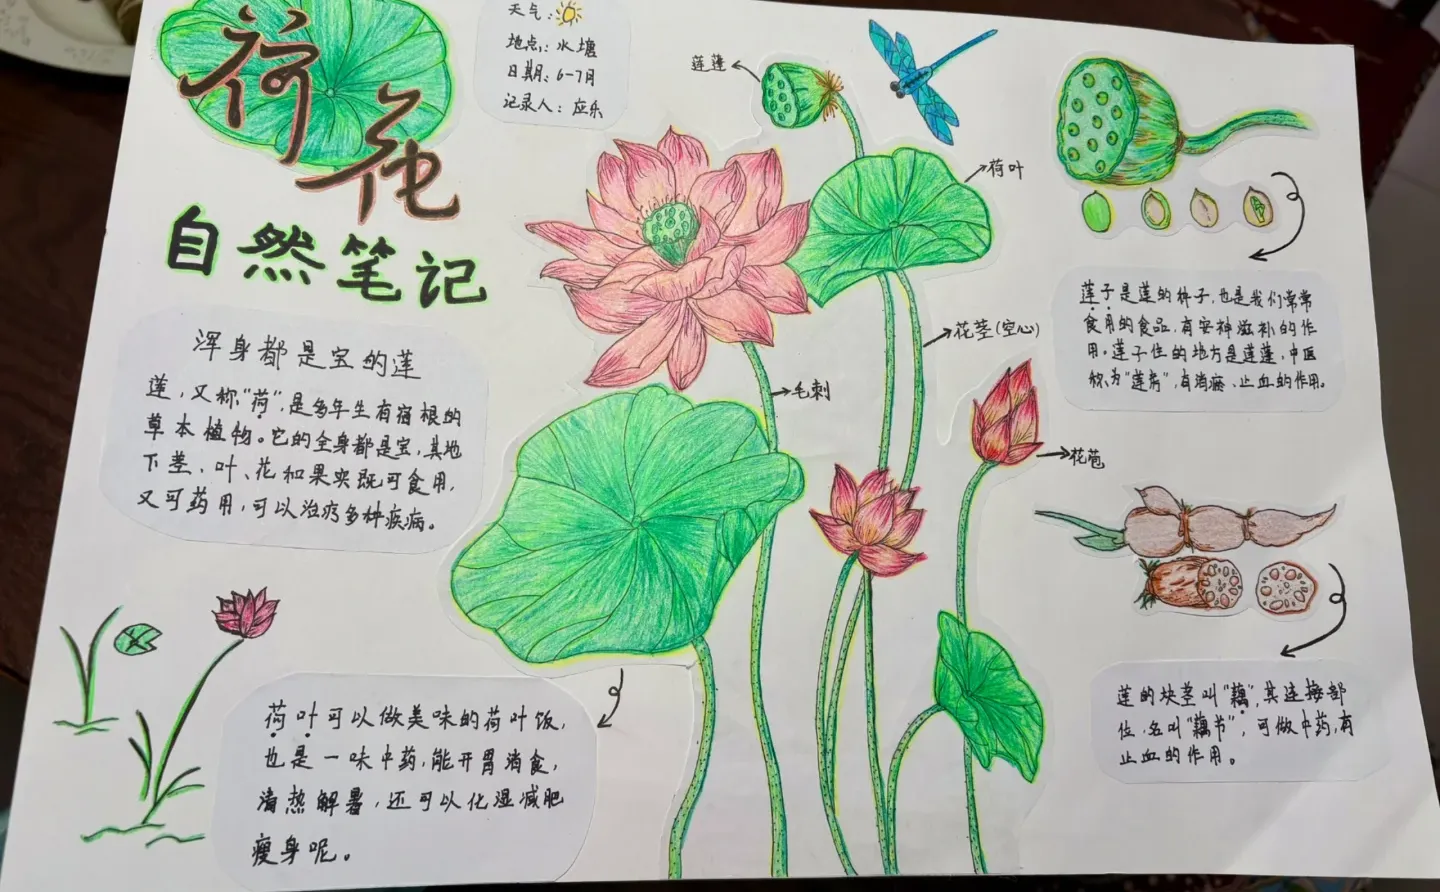 荷花
自然笔记
天气：
地点：水塘
日期：6-7月
记录人：应乐
莲蓬
荷叶
花茎(空心)
毛刺
花苞
浑身都是宝的莲
莲，又称"荷"，是多年生有宿根的
草本植物。它的全身都是宝，其地
下茎、叶、花和果实既可食用，
又可药用，可以治疗多种疾病。
荷叶可以做美味的荷叶饭，
也是一味中药，能开胃消食，
清热解暑，还可以化湿减肥
瘦身呢。
莲子是莲的种子，也是我们常常
食用的食品，有安神滋补的作
用。莲子住的地方是莲蓬，中医
称为"莲房"，有消瘀、止血的作用。
莲的块茎叫"藕"，其连接部
位，名叫"藕节"，可做中药，有
止血的作用。